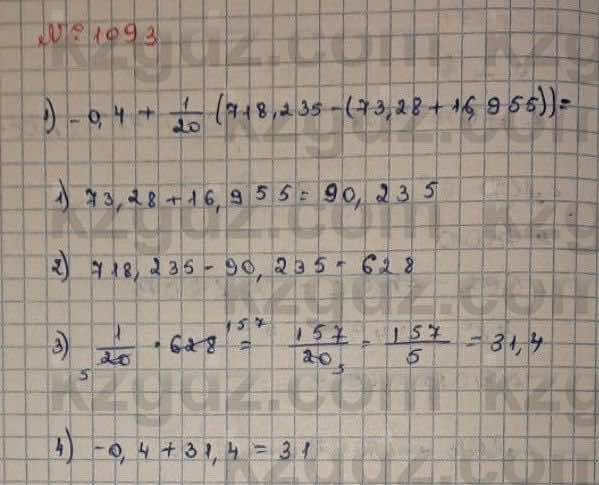 № 1093
1) -0,4 + 1/20 (718,235 - (73,28 + 16,955)) =
1) 73,28 + 16,955 = 90,235
2) 718,235 - 90,235 = 628
3) 1/20 5 · 628 157 = 157/20 5 = 157/5 = 31,4
4) -0,4 + 31,4 = 31
kzgdz.com